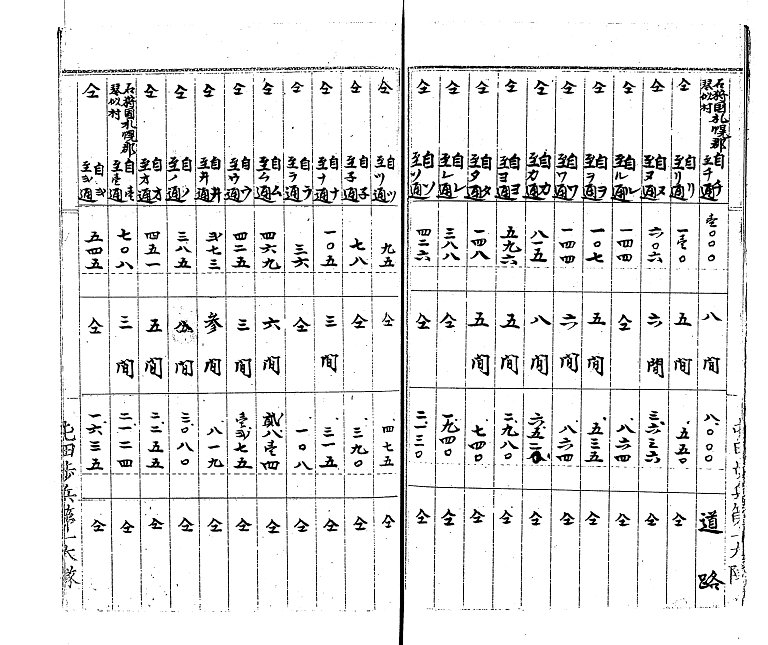 石狩国札幌郡琴似村 自チ至チ通 壱〇〇〇 八間 八.〇〇〇 道路
仝 自リ至リ通 一壱〇 五間 五五〇 仝
仝 自ヌ至ヌ通 六〇六 六間 三.六三六 仝
仝 自ル至ル通 一四四 仝 八六四 仝
仝 自ヲ至ヲ通 一〇七 五間 五三五 仝
仝 自ワ至ワ通 一四四 六間 八六四 仝
仝 自カ至カ通 八一五 八間 六.五二〇 仝
仝 自ヨ至ヨ通 五九六 五間 二.九八〇 仝
仝 自タ至タ通 一四八 五間 七四〇 仝
仝 自レ至レ通 三八八 仝 一.九四〇 仝
仝 自ソ至ソ通 四二六 仝 二.一三〇 仝
仝 自ツ至ツ通 九五 仝 四七五 仝
仝 自子至子通 七八 仝 三九〇 仝
仝 自ナ至ナ通 一〇五 三間 三一五 仝
仝 自ラ至ラ通 三六 仝 一〇八 仝
仝 自ム至ム通 四六九 六間 弐.八壱四 仝
仝 自ウ至ウ通 四二五 三間 壱.弐七五 仝
仝 自井至井通 弐七三 参間 八一九 仝
仝 自ノ至ノ通 三八五 間 三.〇八〇 仝
仝 自オ至オ通 四五一 五間 二.二五五 仝
石狩国札幌郡琴似村 自壱至壱通 七〇八 三間 二.一二四 仝
仝 自弐至弐通 五四五 仝 一.六三五 仝
屯田歩兵第一大隊